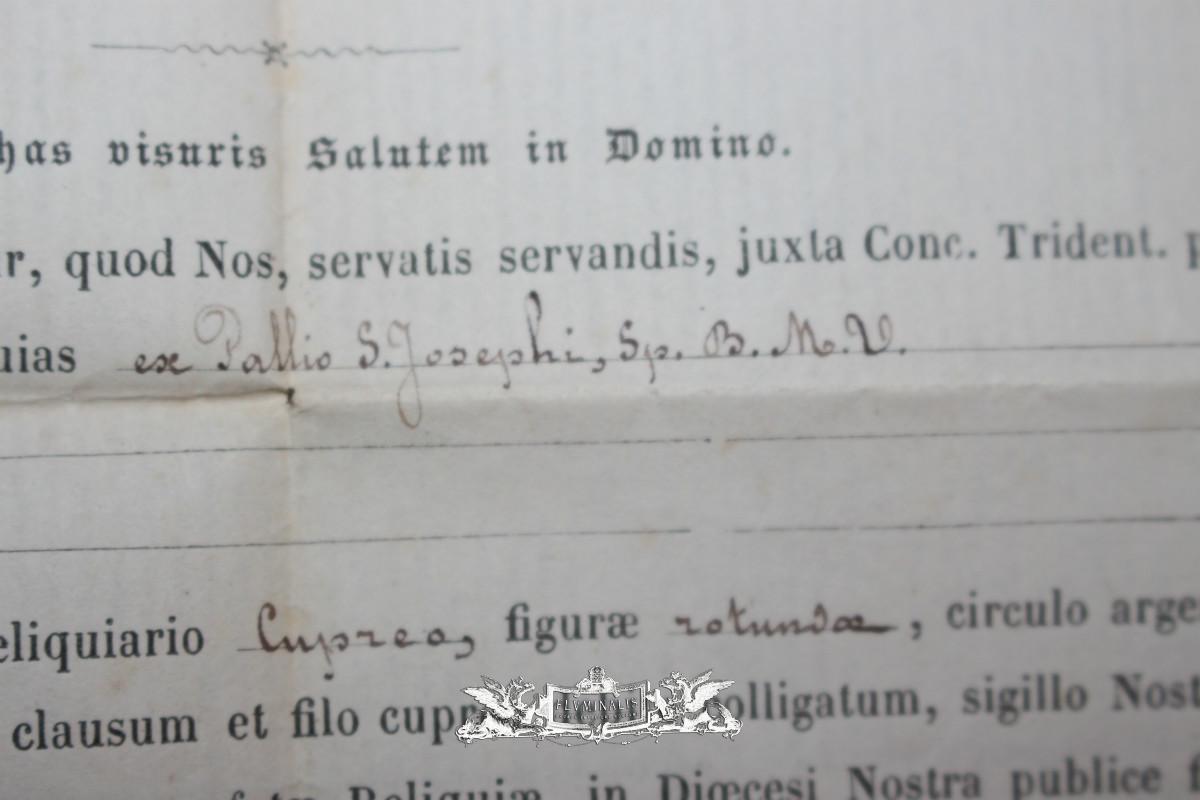 has visuris Salutem in Domino.
r, quod Nos, servatis servandis, juxta Conc. Trident. p
uias ex Pallio S. Josephi, Sp. B. M. V.
eliquiario Cupreo, figuræ rotundæ, circulo arge
clausum et filo cupr olligatum, sigillo Nost
Reliquiæ, in Diœcesi Nostra publice f
FLVMINALIS